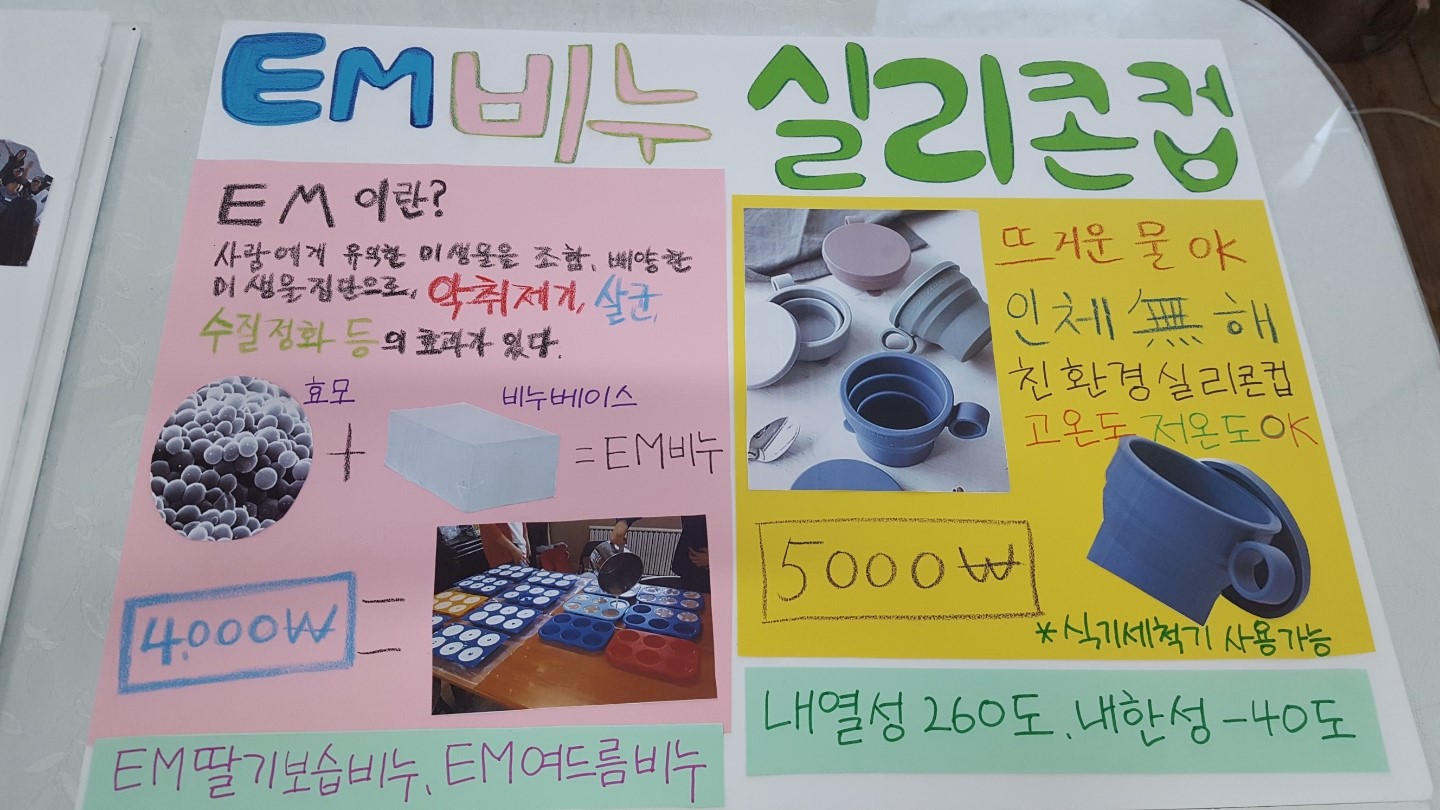 EM비누
EM이란?
사람에게 유익한 미생물을 조합, 배양한
미생물집단으로, 악취제거, 살균,
수질정화 등의 효과가 있다.
효모
비누베이스
+
=EM비누
4.000₩
EM딸기보습비누, EM여드름비누
실리콘컵
뜨거운 물 OK
인체 無 해
친환경실리콘컵
고온도 저온도OK
5000₩
*식기세척기 사용가능
내열성 260도, 내한성 -40도